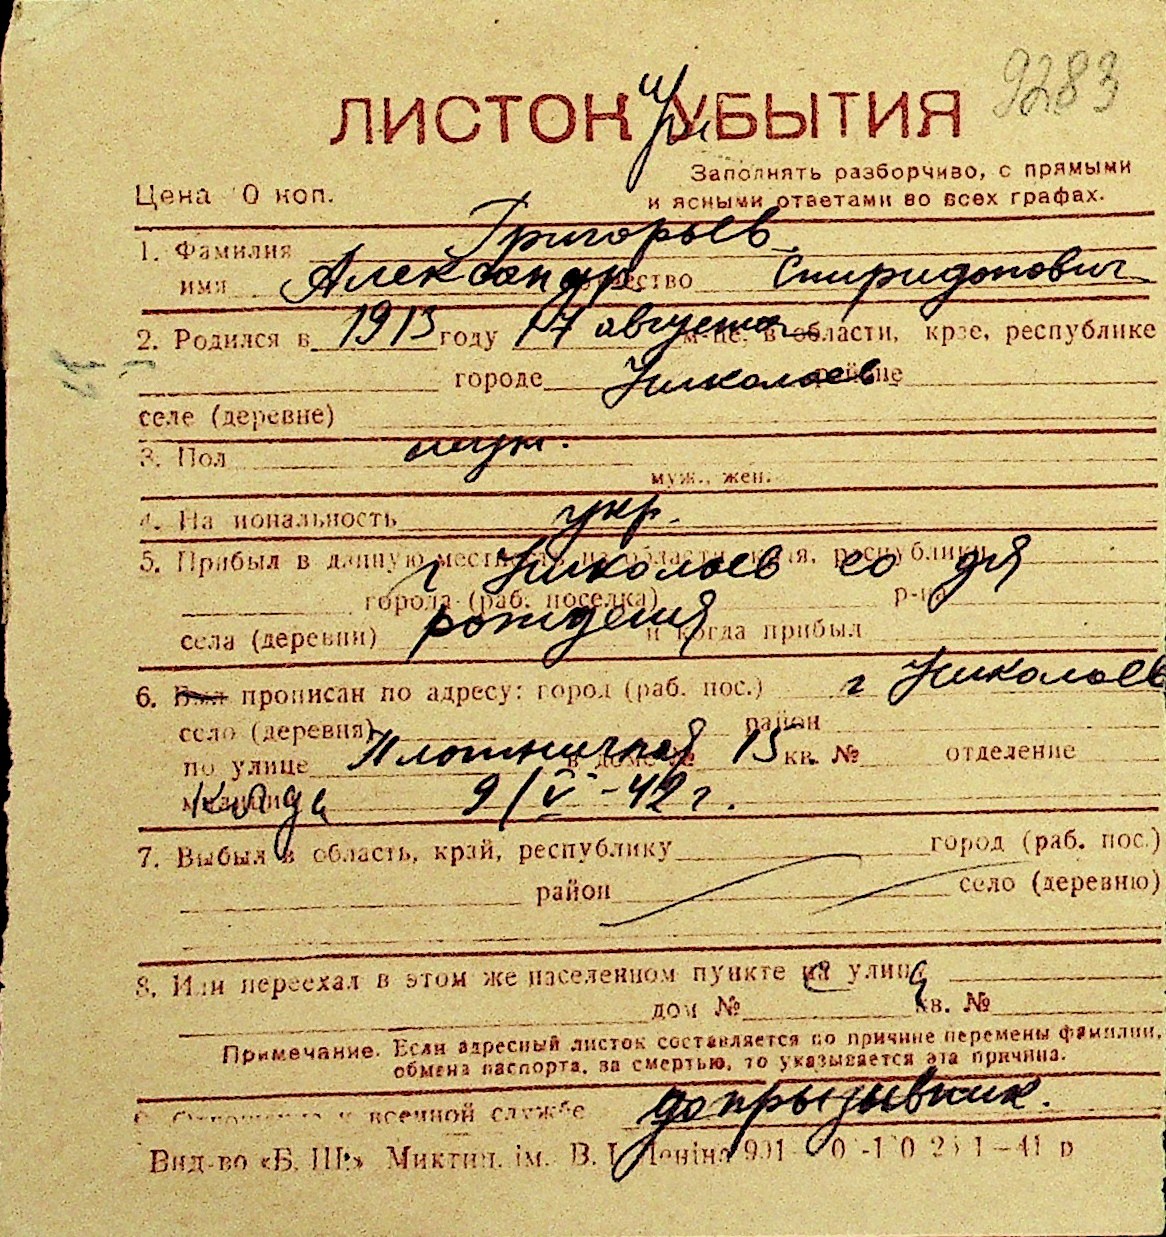 9283
ЛИСТОК УБЫТИЯ
при
Заполнять разборчиво, с прямыми
Цена 0 коп. и ясными ответами во всех графах.
1. Фамилия Григорьев
имя Александр отчество Спиридонович
2. Родился в 1913 году 17 августа м-це, в области, крае, республике
городе Николаев районе
селе (деревне)
3. Пол муж.
муж., жен.
4. Национальность укр.
5. Прибыл в данную местность из области, края, республики
г Николаев со дня
города (раб. поселка) р-на
села (деревни) рождения и когда прибыл
6. Был прописан по адресу: город (раб. пос.) г Николаев
село (деревня) район
по улице Плотничная в доме № 15 кв. № отделение
милиции 9/V-42 г.
7. Выбыл в область, край, республику город (раб. пос.)
район село (деревню)
8. Или переехал в этом же населенном пункте на улицу
дом № кв. №
Примечание. Если адресный листок составляется по причине перемены фамилии,
обмена паспорта, за смертью, то указывается эта причина.
9. Отношение к военной службе допризывник.
Вид-во «Б. Ш.» Миктип. ім. В. І. Леніна